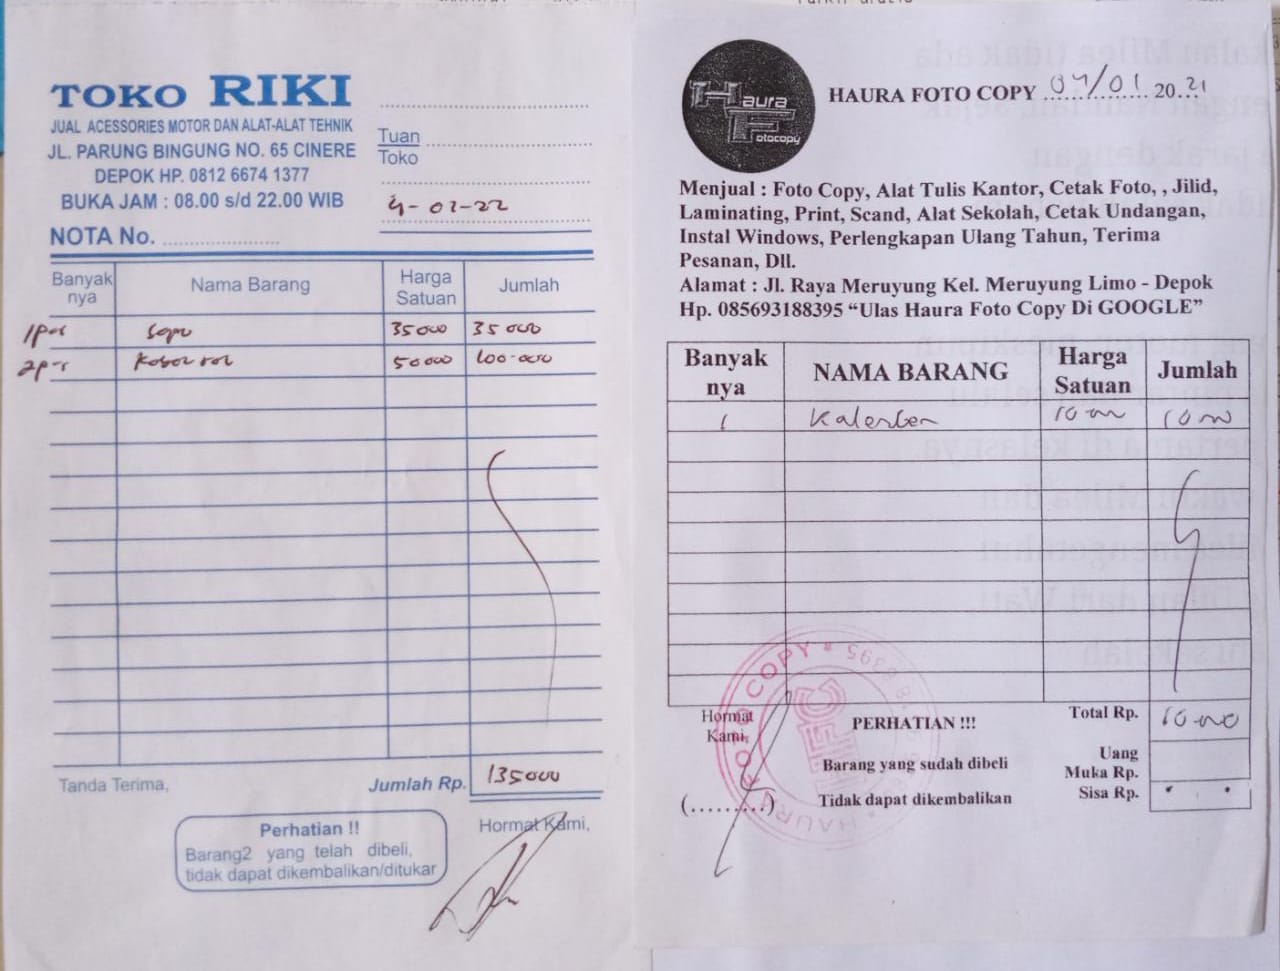 TOKO RIKI
JUAL ACESSORIES MOTOR DAN ALAT-ALAT TEHNIK
JL. PARUNG BINGUNG NO. 65 CINERE
DEPOK HP. 0812 6674 1377
BUKA JAM : 08.00 s/d 22.00 WIB
NOTA No. ....................
Tuan
Toko
4-01-22
Banyak nya Nama Barang Harga Satuan Jumlah
1 pcs sapu 35000 35000
2 pcs 50000 100.000
Jumlah Rp. 135000
Tanda Terima,
Hormat Kami,
Perhatian !!
Barang2 yang telah dibeli,
tidak dapat dikembalikan/ditukar
Haura
Fotocopy
HAURA FOTO COPY 04/01 20 21
Menjual : Foto Copy, Alat Tulis Kantor, Cetak Foto, , Jilid,
Laminating, Print, Scand, Alat Sekolah, Cetak Undangan,
Instal Windows, Perlengkapan Ulang Tahun, Terima
Pesanan, Dll.
Alamat : Jl. Raya Meruyung Kel. Meruyung Limo - Depok
Hp. 085693188395 “Ulas Haura Foto Copy Di GOOGLE”
Banyak nya NAMA BARANG Harga Satuan Jumlah
1 Kalender 10000 10000
Total Rp. 10.000
Hormat
Kami,
PERHATIAN !!!
Uang
Muka Rp.
Barang yang sudah dibeli
Sisa Rp.
(..........) Tidak dapat dikembalikan
HAURA FOTO COPY